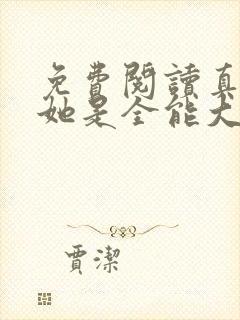 免費閱讀真
她是全能大
賈潔